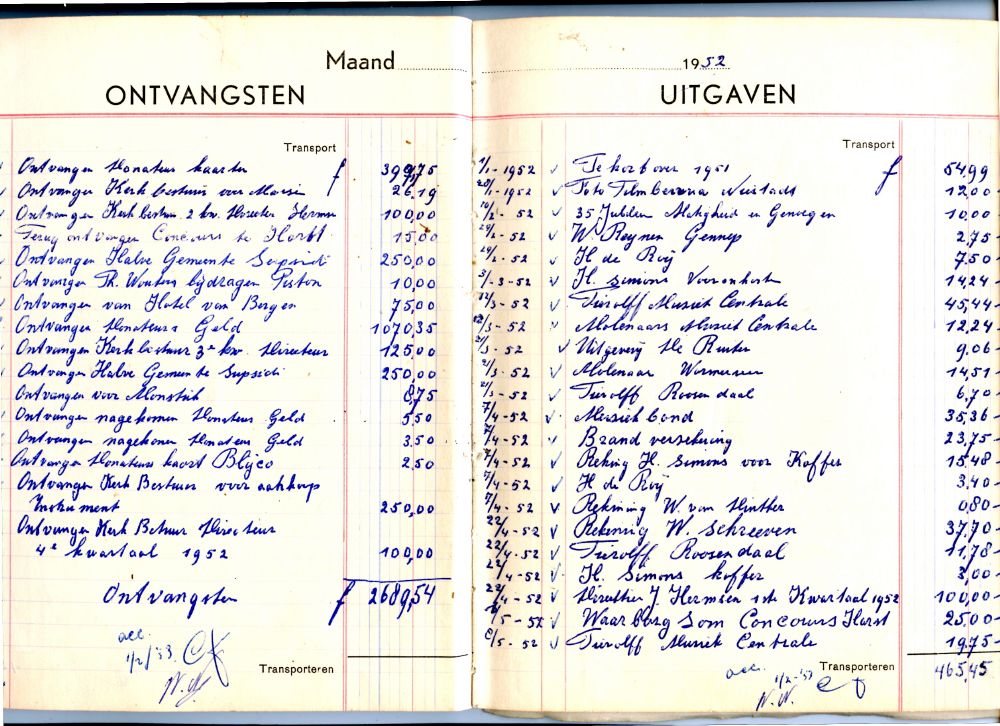 Maand
ONTVANGSTEN
Transport
Ontvangen Donateur kaarten f 399,75
Ontvangen Kerk bestuur voor Missie 26.19
Ontvangen Kerk bestuur 2 kw. Directer Hermsen 100,00
Terug ontvangen Concours te Horst 15,00
Ontvangen Halve Gemeente Supsidi 250,00
Ontvangen Th. Wouters bijdragen Piston 10,00
Ontvangen van Hotel van Bergen 75,00
Ontvangen Donateurs Geld 1070,35
Ontvangen Kerk bestuur 3e kw. Directeur 125,00
Ontvangen Halve Gemeente Supsidi 250,00
Ontvangen voor 8,75
Ontvangen nagekomen Donateur Geld 5,50
Ontvangen nagekomen Donateur Geld 3.50
Ontvangen Donateurs kaart Blijco 2,50
Ontvangen Kerk Bestuur voor aankoop
Instrument 250,00
Ontvangen Kerk Bestuur Directeur
4e kwartaal 1952 100,00
Ontvangsten f 2689,54
acc.
1/2/'53
W.N.
Transporteren
1952
UITGAVEN
Transport
1/1-1952 √ Te kort over 1951 f 54,99
/1-1952 √ Foto Filmberona Neistadt 12,00
/2- 52 √ 35 Jubileu Matigheid en Genoegen 10,00
/2-52 √ W Reynen Gennep 2,75-
/2-52 √ H de Roÿ 7,50-
3/-3-52 √ H. Simons Voorenkosten 14,24-
12/3-52 √ Tierolff Musiek Centrale 45,44-
/3-52 √ Molenaars Musiek Centrale 12,24-
/3-52 √ Uitgeverij De Ruiter 9.06-
/3-52 √ Molenaar Wormerveer 14,51-
/3-52 √ Tierolff Roosendaal 6,70-
7/4-52 √ Musiek bond 35,36-
7/4-52 √ Brand versekering 23,75-
7/4-52 √ Rekning H. Simons voor Koffer 15,48-
7/4-52 √ H de Roÿ 3.40-
7/4-52 √ Rekening W. van Dinther 0,80-
22/4-52 √ Rekening W. Schreeven 37.70-
22/4-52 √ Tierolff Roosendaal 11,78-
22/4-52 √ H. Simons koffer 3,00-
22/4-52 √ Directheur J. Hermsen 1ste Kwartaal 1952 100,00-
/5-52 √ Waarborg Som Concours Horst 25,00-
8/5-52 √ Tierolff Musiek Centrale 19,75-
acc. 1/2-'53 Transporteren 465,45
W.N.